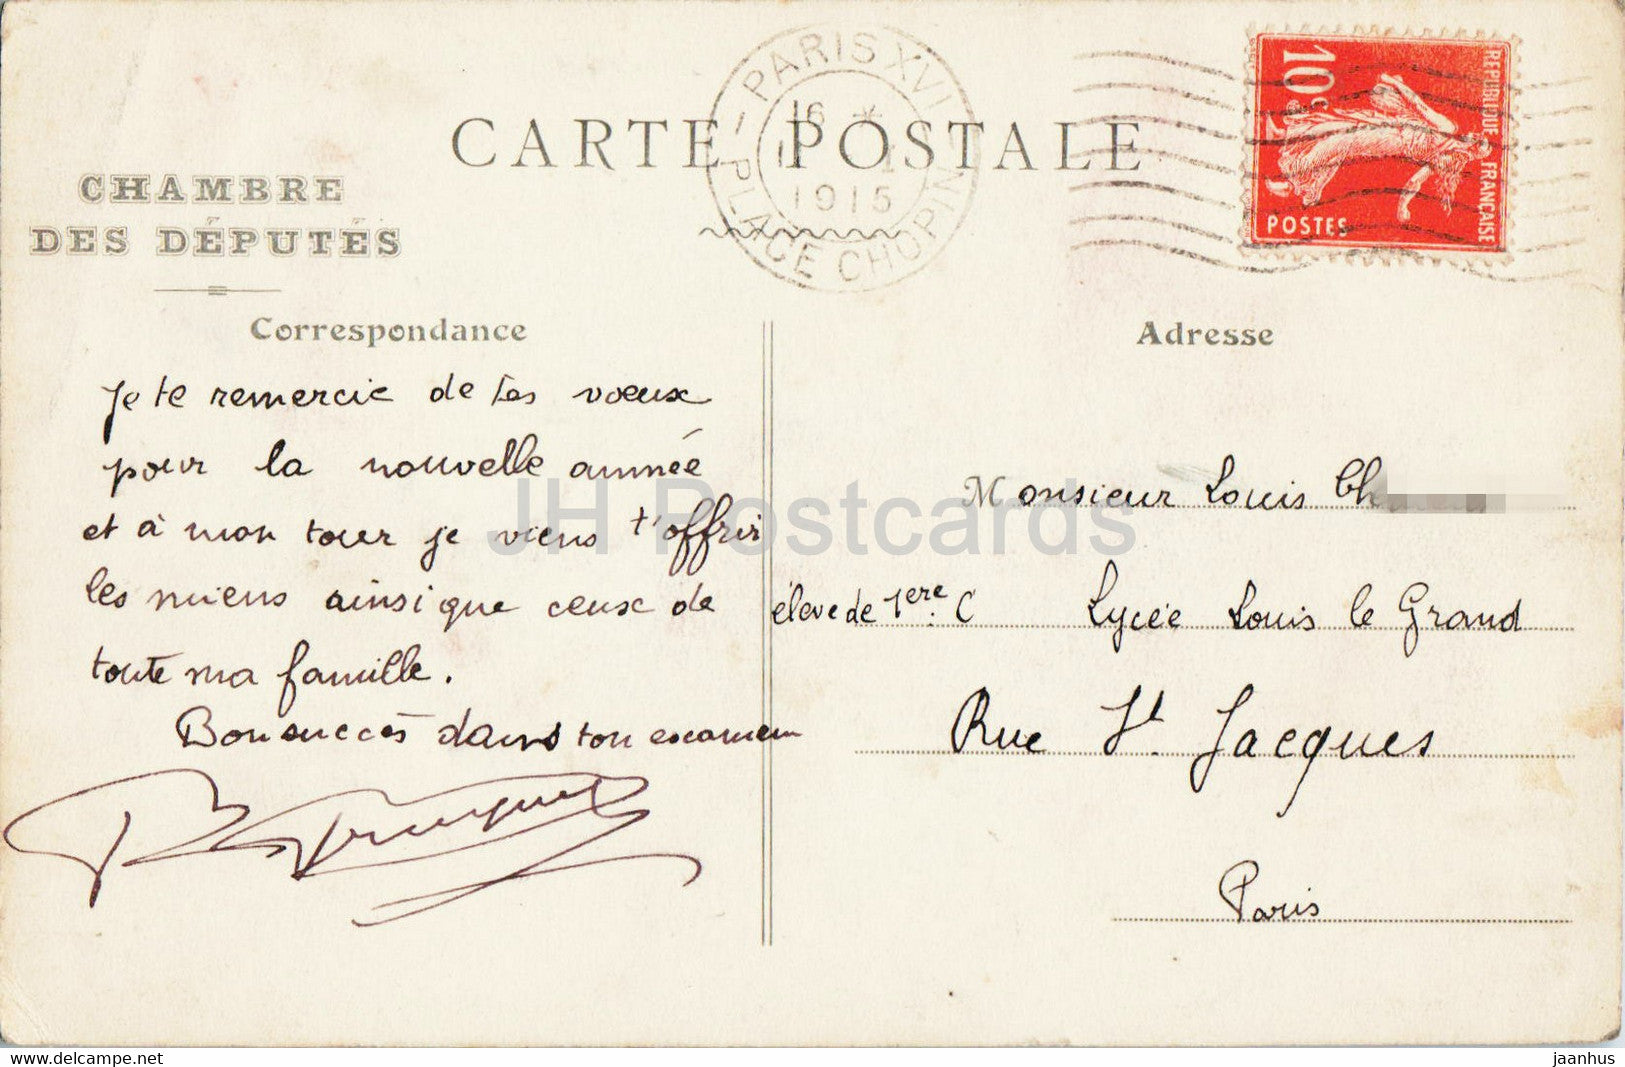 CARTE POSTALE
CHAMBRE
DES DÉPUTÉS
PARIS XVI
16 *
1915
PLACE CHOPIN
10c
REPUBLIQUE FRANÇAISE
POSTES
Correspondance
Adresse
Je te remercie de tes voeux
pour la nouvelle année
et à mon tour je viens t'offrir
les miens ainsi que ceux de
toute ma famille.
Bon succès dans ton examen
Monsieur Louis
élève de 1ère C Lycée Louis le Grand
Rue St. Jacques
Paris
JH Postcards
www.delcampe.net
jaanhus